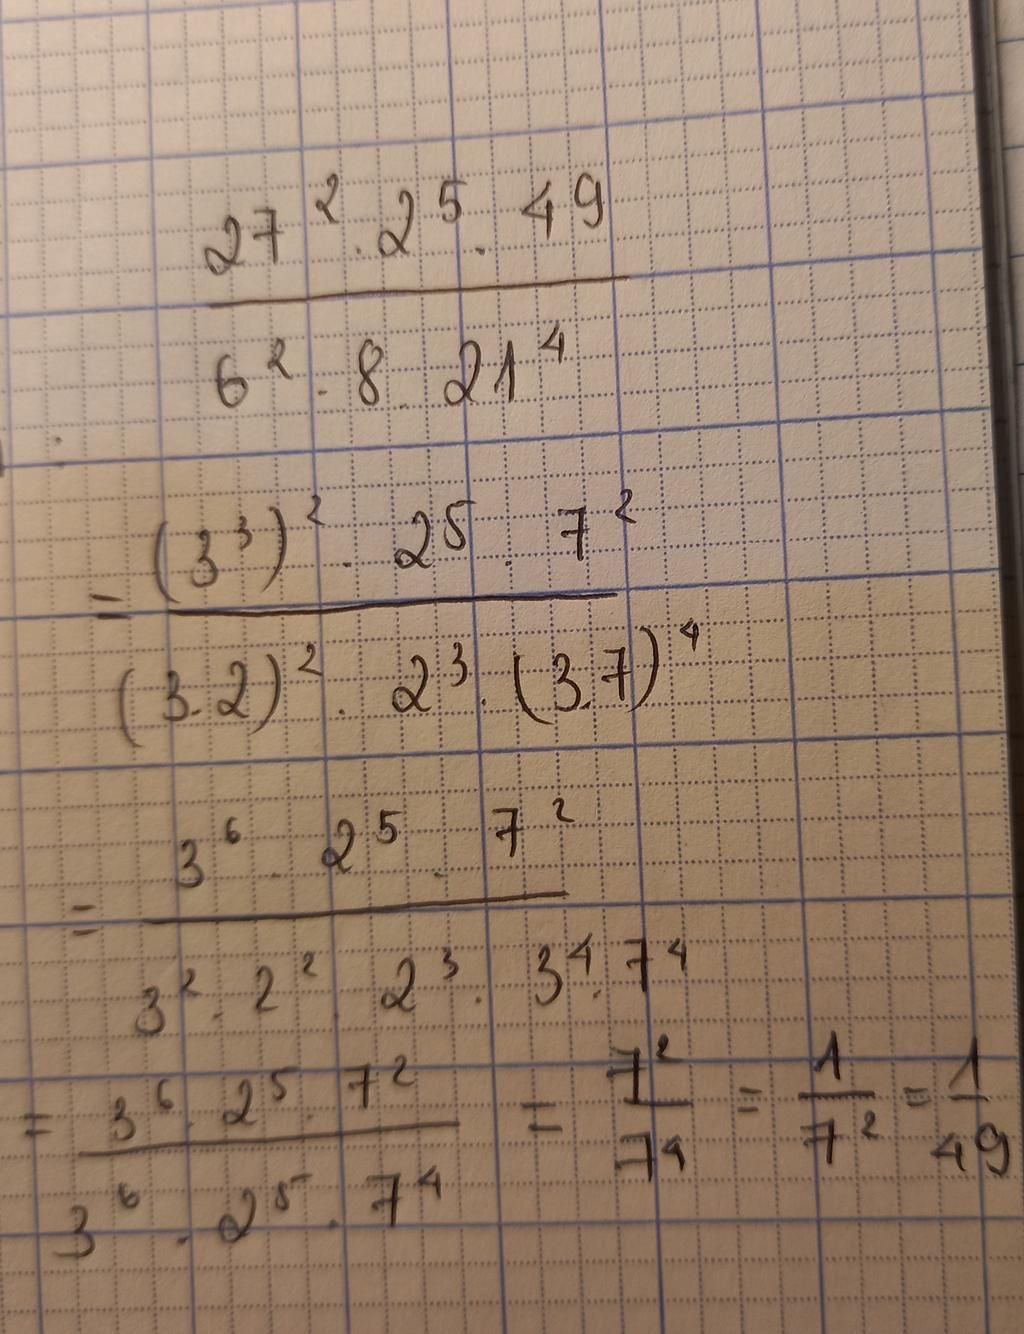 27² . 2⁵ . 49
6² . 8 . 21⁴
= (3³)² . 2⁵ . 7²
(3.2)² . 2³ . (3.7)⁴
= 3⁶ . 2⁵ . 7²
3² . 2² . 2³ . 3⁴ . 7⁴
= 3⁶ . 2⁵ . 7² = 7² = 1 = 1
3⁶ . 2⁵ . 7⁴ 7⁴ 7² 49